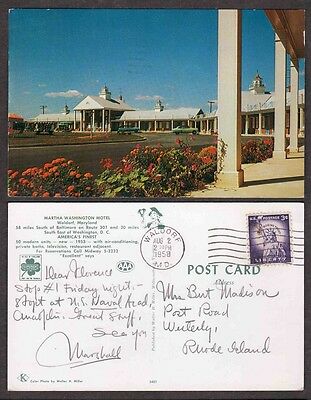 MARTHA WASHINGTON MOTEL
Waldorf, Maryland
58 miles South of Baltimore on Route 301 and 20 miles
South East of Washington, D. C.
AMERICA'S FINEST
50 modern units - new - 1953 - with air-conditioning,
private baths, television, restaurant adjacent
For Reservations Call Midway 5-2232
"Excellent" says
AAA
Dear Florence
Stop #1 Friday night -
8 to pt at U.S. Naval Acad.
Great Stuff,
See you
Marshall
K
Color Photo by Walter H. Miller
WALDORF
AUG 2
PM
1958
MD.
U.S. POSTAGE 3¢
LIBERTY
POST CARD
Address
Mrs Burt Madison
Post Road
Westerly,
Rhode Island